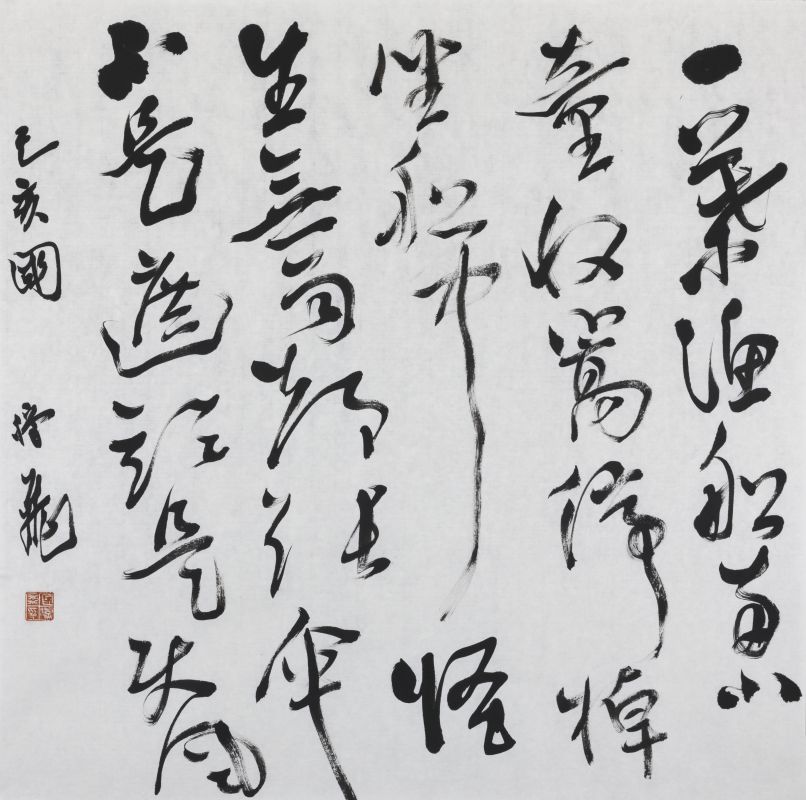 一葉漁船兩小
童收篙停棹
坐船中怪
生無雨都張傘
不是遮頭是使風
己亥國 飛